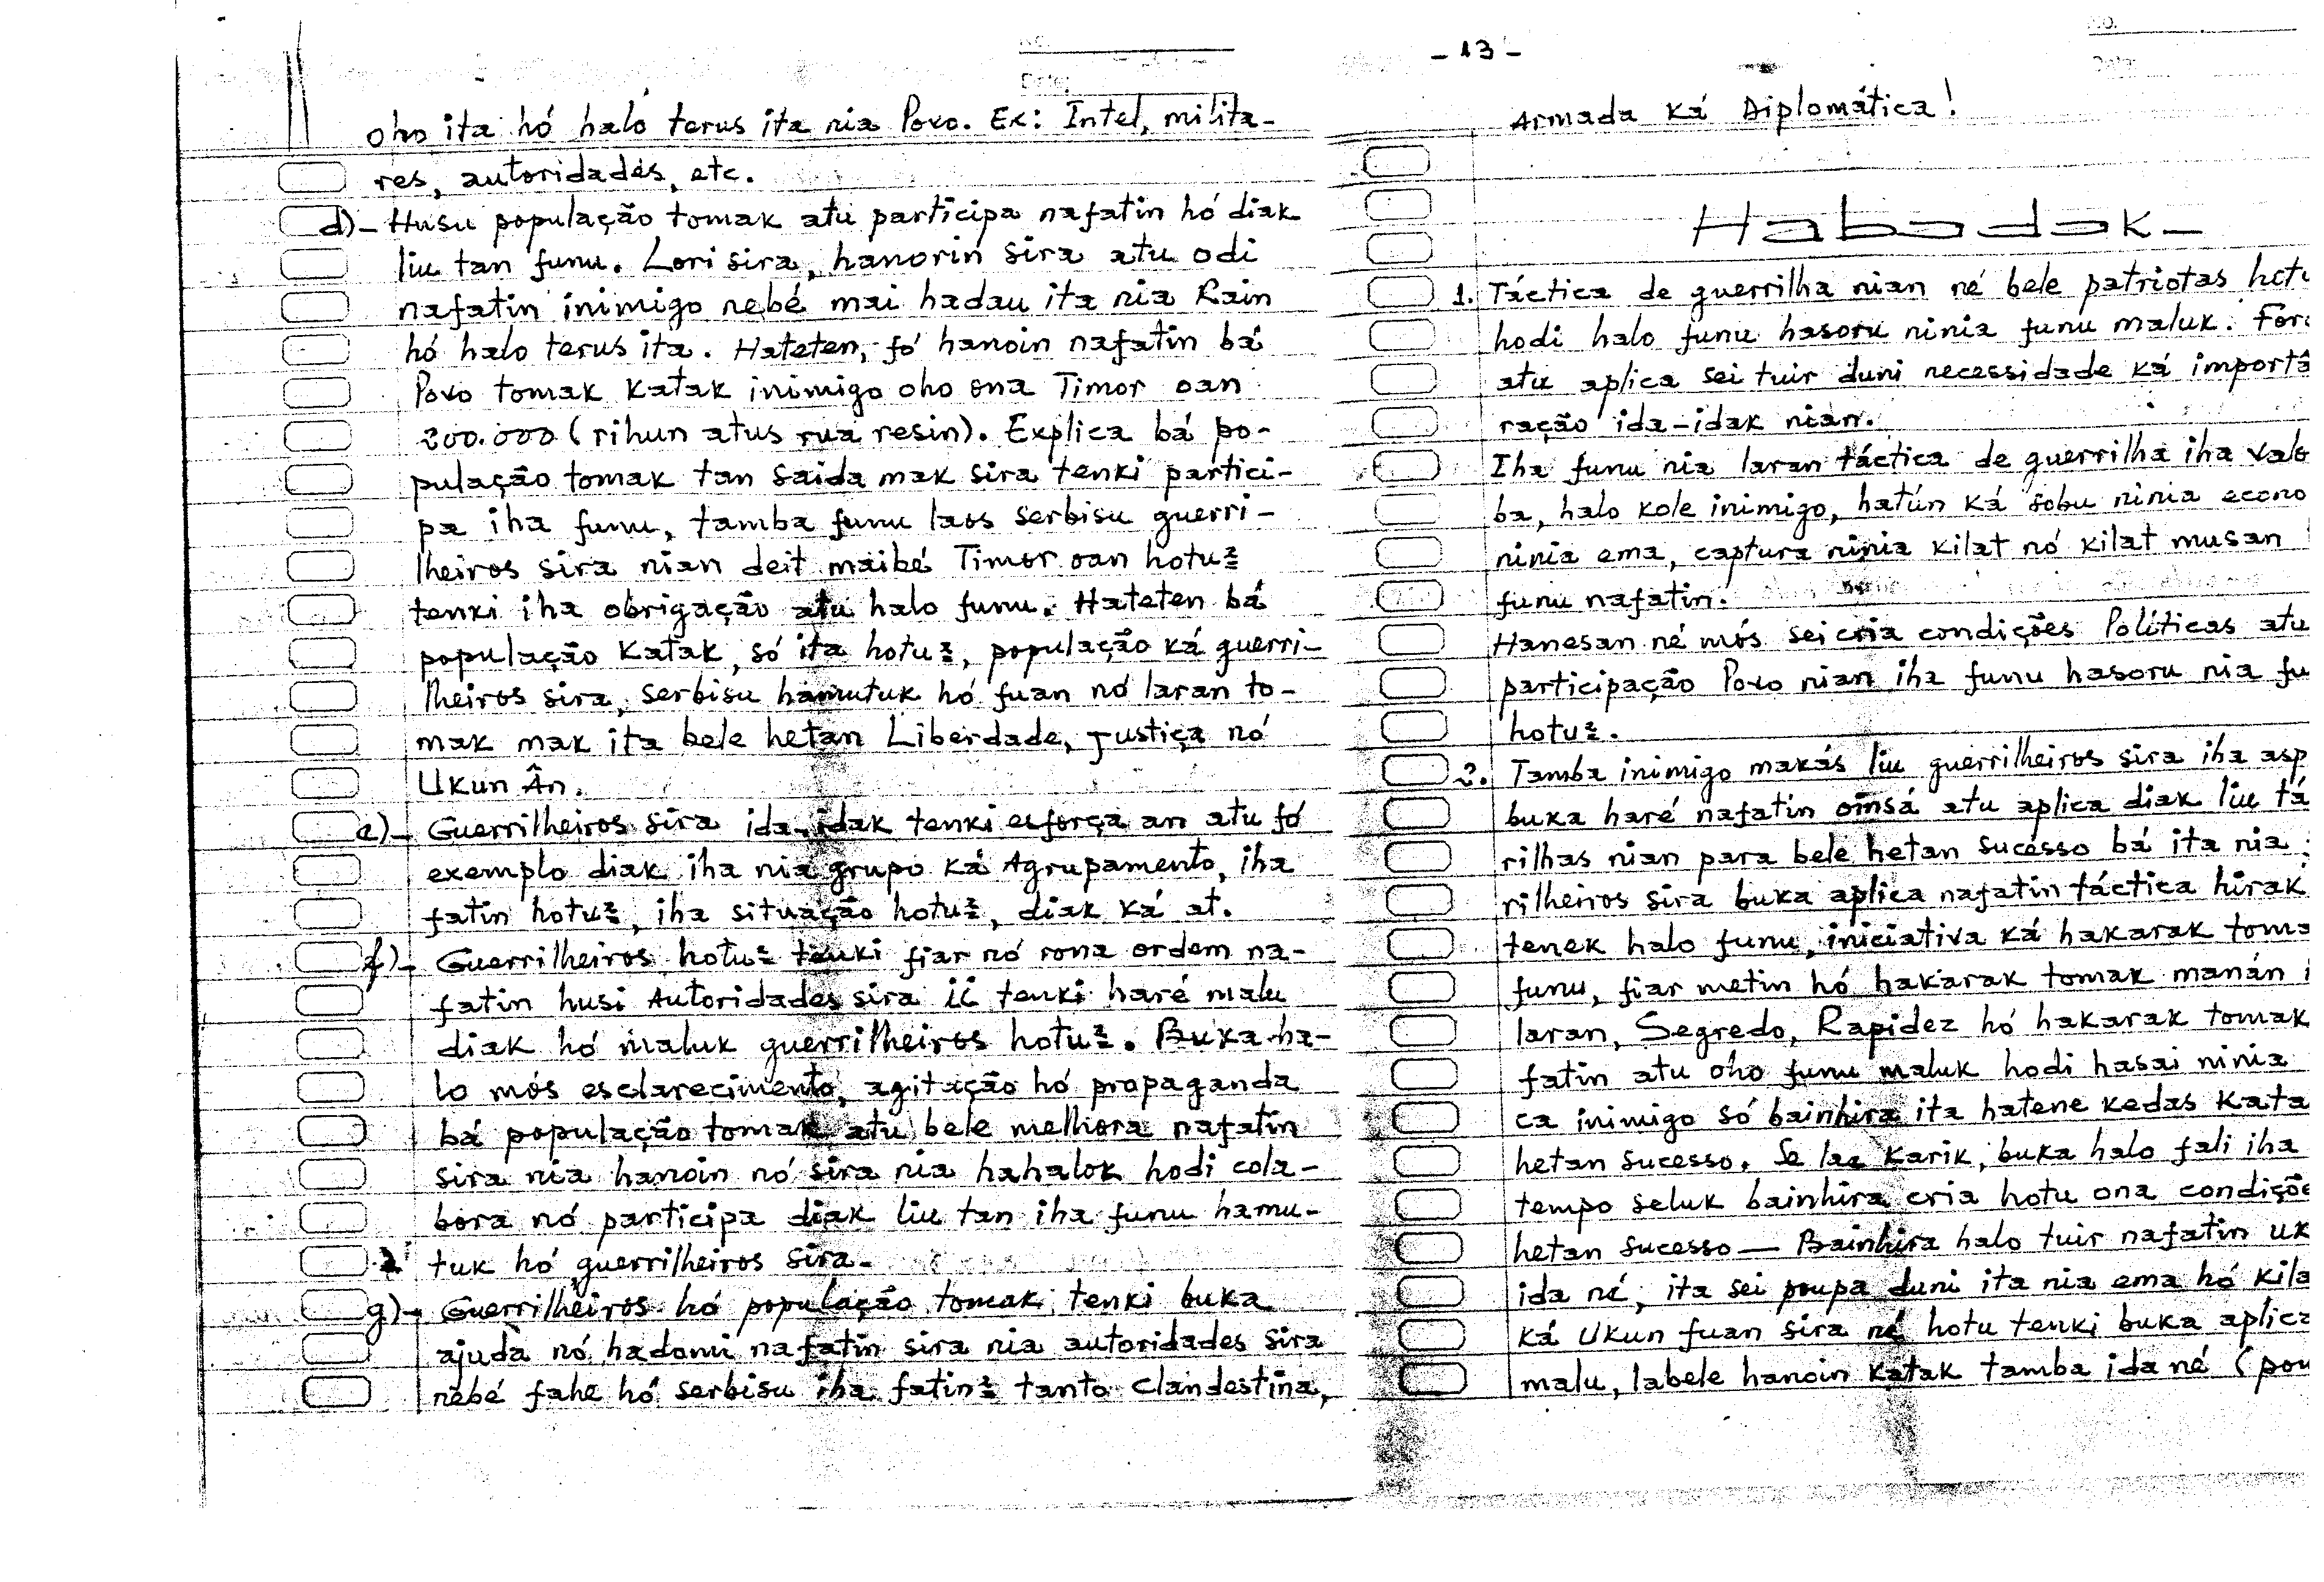 oho ita hó haló terus ita nia Povo. Ex: Intel, milita-
res, autoridades, etc.
d)- Husu população tomak atu participa nafatin hó diak
liu tan funu. Lori sira, hanorin sira atu odi
nafatin inimigo nebé mai hadau ita nia Rain
hó halo terus ita. Hateten, fó hanoin nafatin bá
Povo tomak katak inimigo oho ona Timor oan
200.000 (rihun atus rua resin). Explica bá po-
pulação tomak tan saida mak sira tenki partici-
pa iha funu, tamba funu laos serbisu guerri-
lheiros sira nian deit maibé Timor oan hotu²
tenki iha obrigação atu halo funu. Hateten bá
população katak, só ita hotu², população ká guerri-
lheiros sira, serbisu hamutuk hó fuan nó laran to-
mak mak ita bele hetan Liberdade, Justiça nó
Ukun Ân.
e)- Guerrilheiros sira ida-idak tenki esforça an atu fó
exemplo diak iha nia grupo ká Agrupamento, iha
fatin hotu², iha situação hotu², diak ká at.
f)- Guerrilheiros hotu² tenki fiar nó rona ordem na-
fatin husi Autoridades sira ií tenki haré malu
diak hó maluk guerrilheiros hotu². Buka ha-
lo mós esclarecimento, agitação hó propaganda
bá população tomak atu bele melhora nafatin
sira nia hanoin nó sira nia hahalok hodi cola-
bora nó participa diak liu tan iha funu hamu-
tuk hó guerrilheiros sira.
g)- Guerrilheiros hó população tomak tenki buka
ajuda nó hadomi nafatin sira nia autoridades sira
nebé fahe hó serbisu iha fatin² tanto Clandestina,
- 13 -
Armada ká Diplomática!
Habadak -
1. Táctica de guerrilha nian né bele patriotas hotu
hodi halo funu hasoru ninia funu maluk. For
atu aplica sei tuir duni necessidade ká importâ
ração ida-idak nian.
Iha funu nia laran táctica de guerrilha iha valo
ba, halo kole inimigo, hatún ká sobu ninia econo
ninia ema, captura ninia kilat nó kilat musan
funu nafatin.
Hanesan né mós sei cria condições Políticas atu
participação Povo nian iha funu hasoru nia fu
hotu².
2. Tamba inimigo makás liu guerrilheiros sira iha asp
buka haré nafatin oinsá atu aplica diak liu tá
rilhas nian para bele hetan sucesso bá ita nia
rilheiros sira buka aplica nafatin táctica hirak
tenek halo funu, iniciativa ká hakarak toma
funu, fiar metin hó hakarak tomak manán
laran, Segredo, Rapidez hó hakarak tomak
fatin atu oho funu maluk hodi hasai ninia
ca inimigo só bainhira ita hatene kedas kata
hetan sucesso. Se lae karik, buka halo fali iha
tempo seluk bainhira cria hotu ona condiçõe
hetan sucesso — Bainhira halo tuir nafatin uk
ida né, ita sei poupa duni ita nia ema hó kila
ká Ukun fuan sira né hotu tenki buka aplica
malu, labele hanoin katak tamba ida né (pou